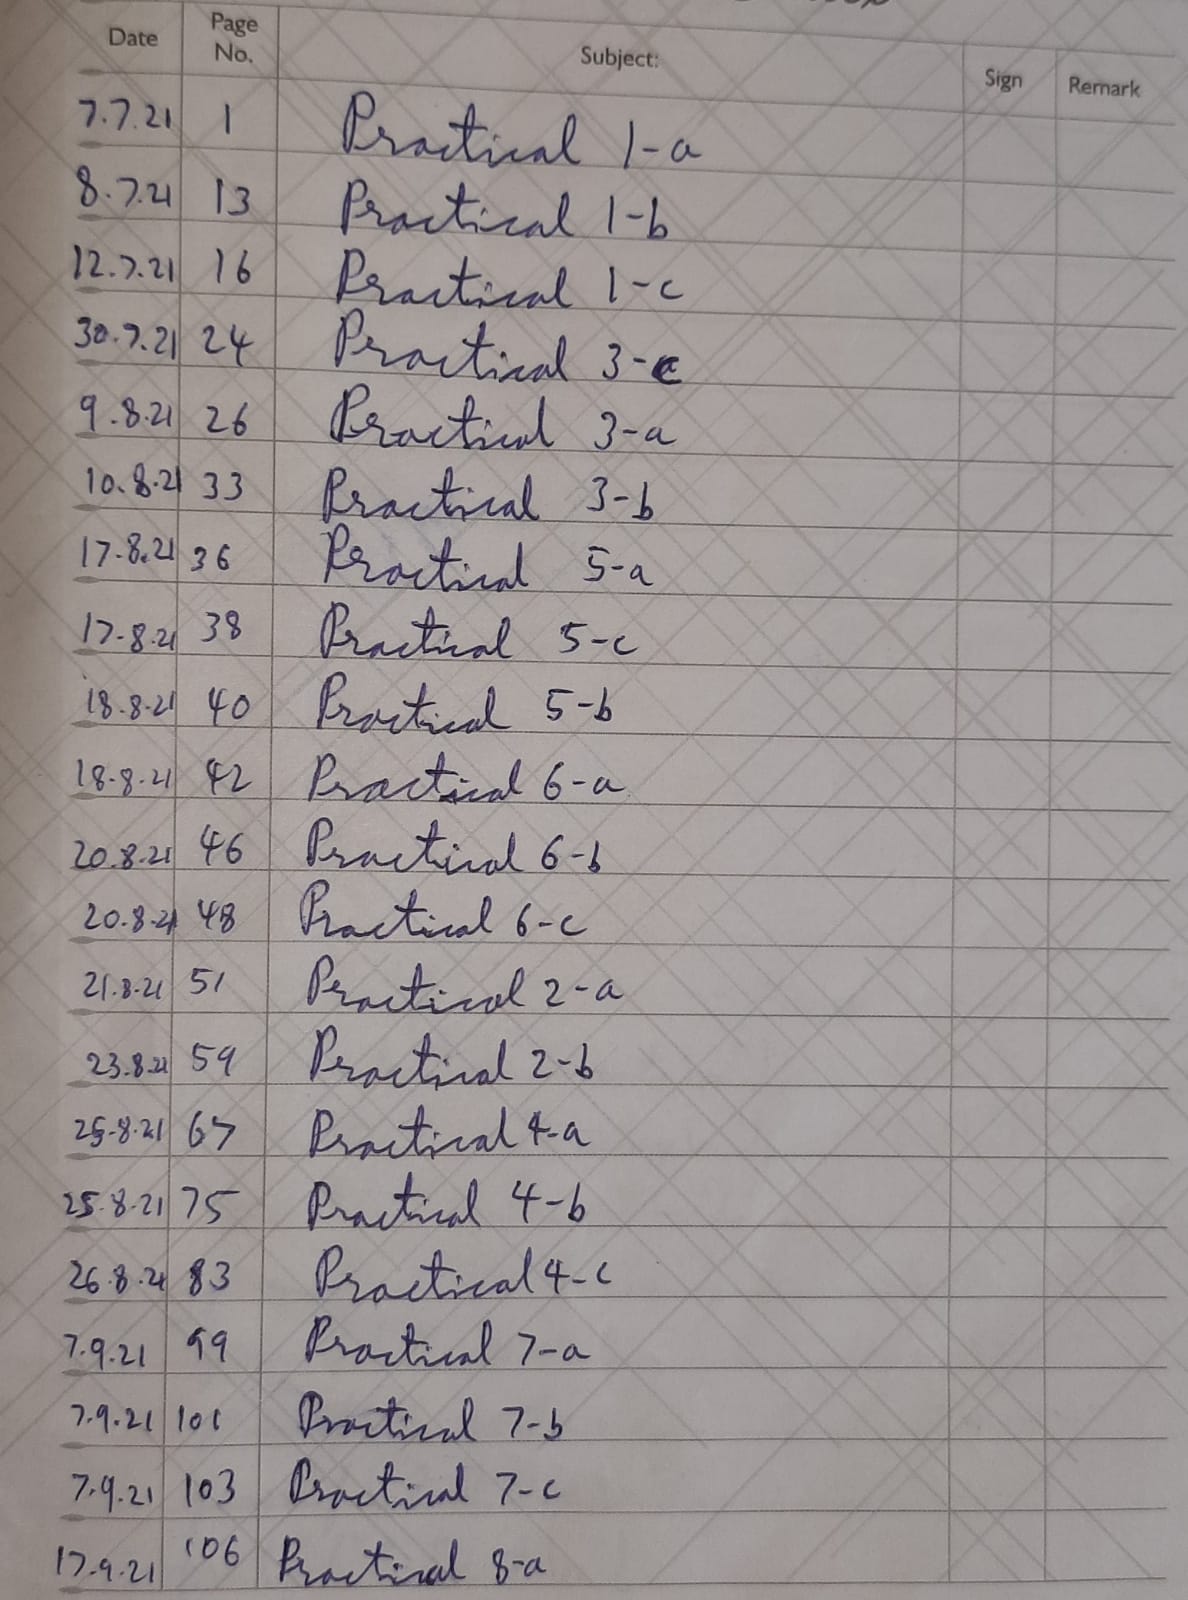 Date Page No. Subject: Sign Remark
7.7.21 1 Practical 1-a
8.7.21 13 Practical 1-b
12.7.21 16 Practical 1-c
30.7.21 24 Practical 3-c
9.8.21 26 Practical 3-a
10.8.21 33 Practical 3-b
17-8.21 36 Practical 5-a
17-8.21 38 Practical 5-c
18.8.21 40 Practical 5-b
18-8-21 42 Practical 6-a
20.8.21 46 Practical 6-b
20.8.21 48 Practical 6-c
21.8.21 51 Practical 2-a
23.8.21 59 Practical 2-b
25-8.21 67 Practical 4-a
25.8.21 75 Practical 4-b
26.8.21 83 Practical 4-c
7.9.21 99 Practical 7-a
7.9.21 101 Practical 7-b
7.9.21 103 Practical 7-c
17.9.21 106 Practical 8-a